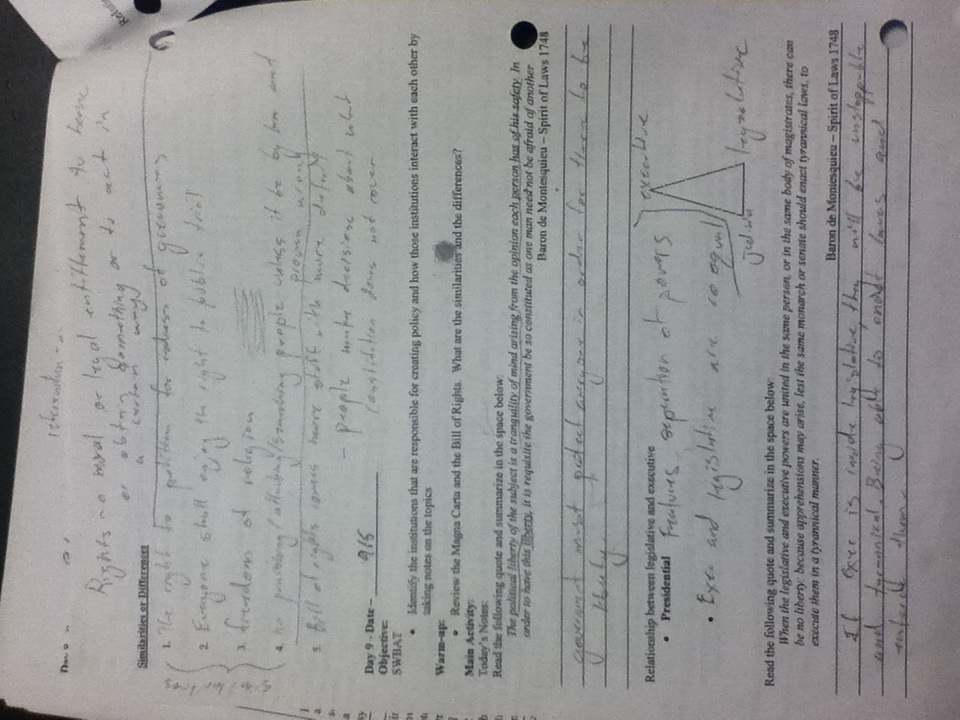 Rights - a moral or legal entitlement to have
or obtain something or to act in
a certain way
Similarities or Differences
similarities
1. The right to petition for redress of
2. Everyone shall enjoy the right to public trial
3. freedom of religion
4. no punishing / / searching people unless it be by law and
proven wrong
5. Bill of rights covers more stuff with more detail
- people make decisions about what
constitution does not cover
Day 9 - Date - 9/5
Objective:
SWBAT
• Identify the institutions that are responsible for creating policy and how those institutions interact with each other by
taking notes on the topics
Warm-up:
• Review the Magna Carta and the Bill of Rights. What are the similarities and the differences?
Main Activity:
Today's Notes:
Read the following quote and summarize in the space below:
The political liberty of the subject is a tranquility of mind arising from the opinion each person has of his safety. In
order to have this liberty, it is requisite the government be so constituted as one man need not be afraid of another
Baron de Montesquieu – Spirit of Laws 1748
government must protect everyone in order for there to be
liberty.
Relationship between legislative and executive
• Presidential Features separation of powers
executive
• Exec and legislative are coequal
legislative
Read the following quote and summarize in the space below:
When the legislative and executive powers are united in the same person, or in the same body of magistrates, there can
be no liberty: because apprehensions may arise, lest the same monarch or senate should enact tyrannical laws, to
execute them in a tyrannical manner.
Baron de Montesquieu – Spirit of Laws 1748
If exec is inside legislative, they will be unstoppable
and tyrannical. Being able to enact laws and
enforce them.